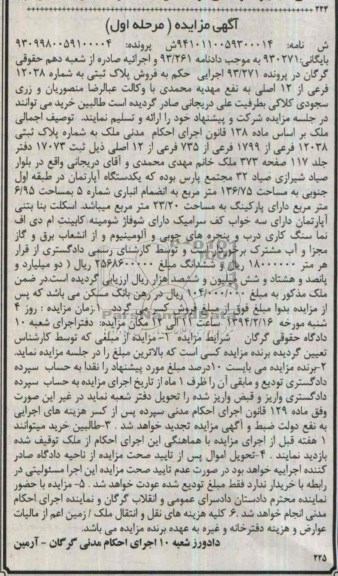 ۲۲۳
آگهی مزایده ( مرحله اول)
ش نامه: ۹۴۱۰۱۱۰۰۵۹۳۰۰۰۱۴ ش پرونده: ۹۳۰۹۹۸۰۰۵۹۱۰۰۰۰۴
بایگانی: ۹۳۰۲۷۱ به موجب دادنامه ۹۳/۲۶۱ و اجرائیه صادره از شعبه دهم حقوقی
گرگان در پرونده ۹۳/۲۷۱ اجرایی حکم به فروش پلاک ثبتی به شماره ۱۲۰۳۸
فرعی از ۱۲ اصلی به نفع مهدیه محمدی با وکالت عبالرضا منصوریان و زری
سجودی کلاکی بطرفیت علی دریجانی صادر گردیده است طالبین خرید می توانند
در جلسه مزایده شرکت و پیشنهاد خود را ارائه و تسلیم نمایند. توصیف اجمالی
ملک بر اساس ماده ۱۳۸ قانون اجرای احکام مدنی ملک به شماره پلاک ثبتی
۱۲۰۳۸ فرعی از ۱۷۹۹ فرعی از ۷۳۵ فرعی از ۱۲ اصلی ذیل ثبت ۱۷۰۷۳ دفتر
جلد ۱۱۷ صفحه ۳۷۳ ملک خانم مهدی محمدی و آقای دریجانی واقع در بلوار
صیاد شیرازی صیاد ۳۲ مجتمع پارس بوده که یکدستگاه آپارتمان در طبقه اول
جنوبی به مساحت ۱۳۶/۷۵ متر مربع به انضمام انباری شماره ۵ بمساحت ۶/۹۵
متر مربع دارای پارکینگ به مساحت ۲۳/۲۰ متر مربع میباشد. اسکلت بنا بتنی
آپارتمان دارای سه خواب کف سرامیک دارای شوفاژ شومینه کابینت ام دی اف
نما سنگ کاری درب و پنجره های چوبی و آلومینیوم و از انشعاب برق و گاز
مجزا و اب مشترک برخوردار است و توسط کارشناس رسمی دادگستری از قرار
هر متر ۱۸۰۰۰۰۰۰ ریال و ششدانگ مبلغ ۲۵۶۸۶۰۰۰۰۰ ریال ( دو میلیارد و
پانصد و هشتاد و شش میلیون و ششصد هزار ریال ارزیابی گردیده است.در ضمن
ملک مذکور به مبلغ ۱۰۴/۰۰۰/۰۰۰ ریال در رهن بانک مسکن می باشد که پس
از مزایده بدوا مبلغ فوق از مبلغ فروش کسر می گردد. ( زمان مزایده : روز ۴
شنبه مورخه ۱۳۹۴/۲/۱۶ ساعت ۱۱ الی ۱۲ مکان مزایده: دفتراجرای شعبه ۱۰
دادگاه حقوقی گرگان شرایط مزایده ۱-مزایده از مبلغی که توسط کارشناس
تعیین گردیده برنده مزایده کسی است که بالاترین مبلغ را در جلسه مزایده نماید.
۲-برنده مزایده می بایست ۱۰درصد مبلغ مورد پیشنهاد را نقدا به حساب سپرده
دادگستری تودیع و مابقی آن را ظرف ۱ ماه از تاریخ اجرای مزایده به حساب سپرده
دادگستری واریز و قبض واریز شده را تحویل دفتر شعبه نماید در غیر این صورت
وفق ماده ۱۲۹ قانون اجرای احکام مدنی سپرده پس از کسر هزینه های اجرایی
به نفع دولت ضبط و آگهی مزایده تجدید خواهد شد. ۳-طالبین خرید میتوانند
۱ هفته قبل از اجرای مزایده با هماهنگی این اجرای احکام از ملک توقیف شده
بازدید نمایند. ۴-تحویل اموال پس از تایید صحت مزایده از ناحیه دادگاه صادر
کننده اجراییه خواهد بود در صورت عدم تایید صحت مزایده این اجرا مسئولیتی در
رابطه با خریدار ندارد فقط مبلغ تودیع شده عودت خواهد شد. ۵- مزایده با حضور
نماینده محترم دادستان دادسرای عمومی و انقلاب گرگان و نماینده اجرای احکام
مدنی انجام خواهد شد .۶. کلیه هزینه های نقل و انتقال ملک / زمین اعم از مالیات
عوارض و هزینه دفترخانه و غیره به عهده برنده مزایده می باشد.
دادورز شعبه ۱۰ اجرای احکام مدنی گرگان - آرمین
۲۲۵